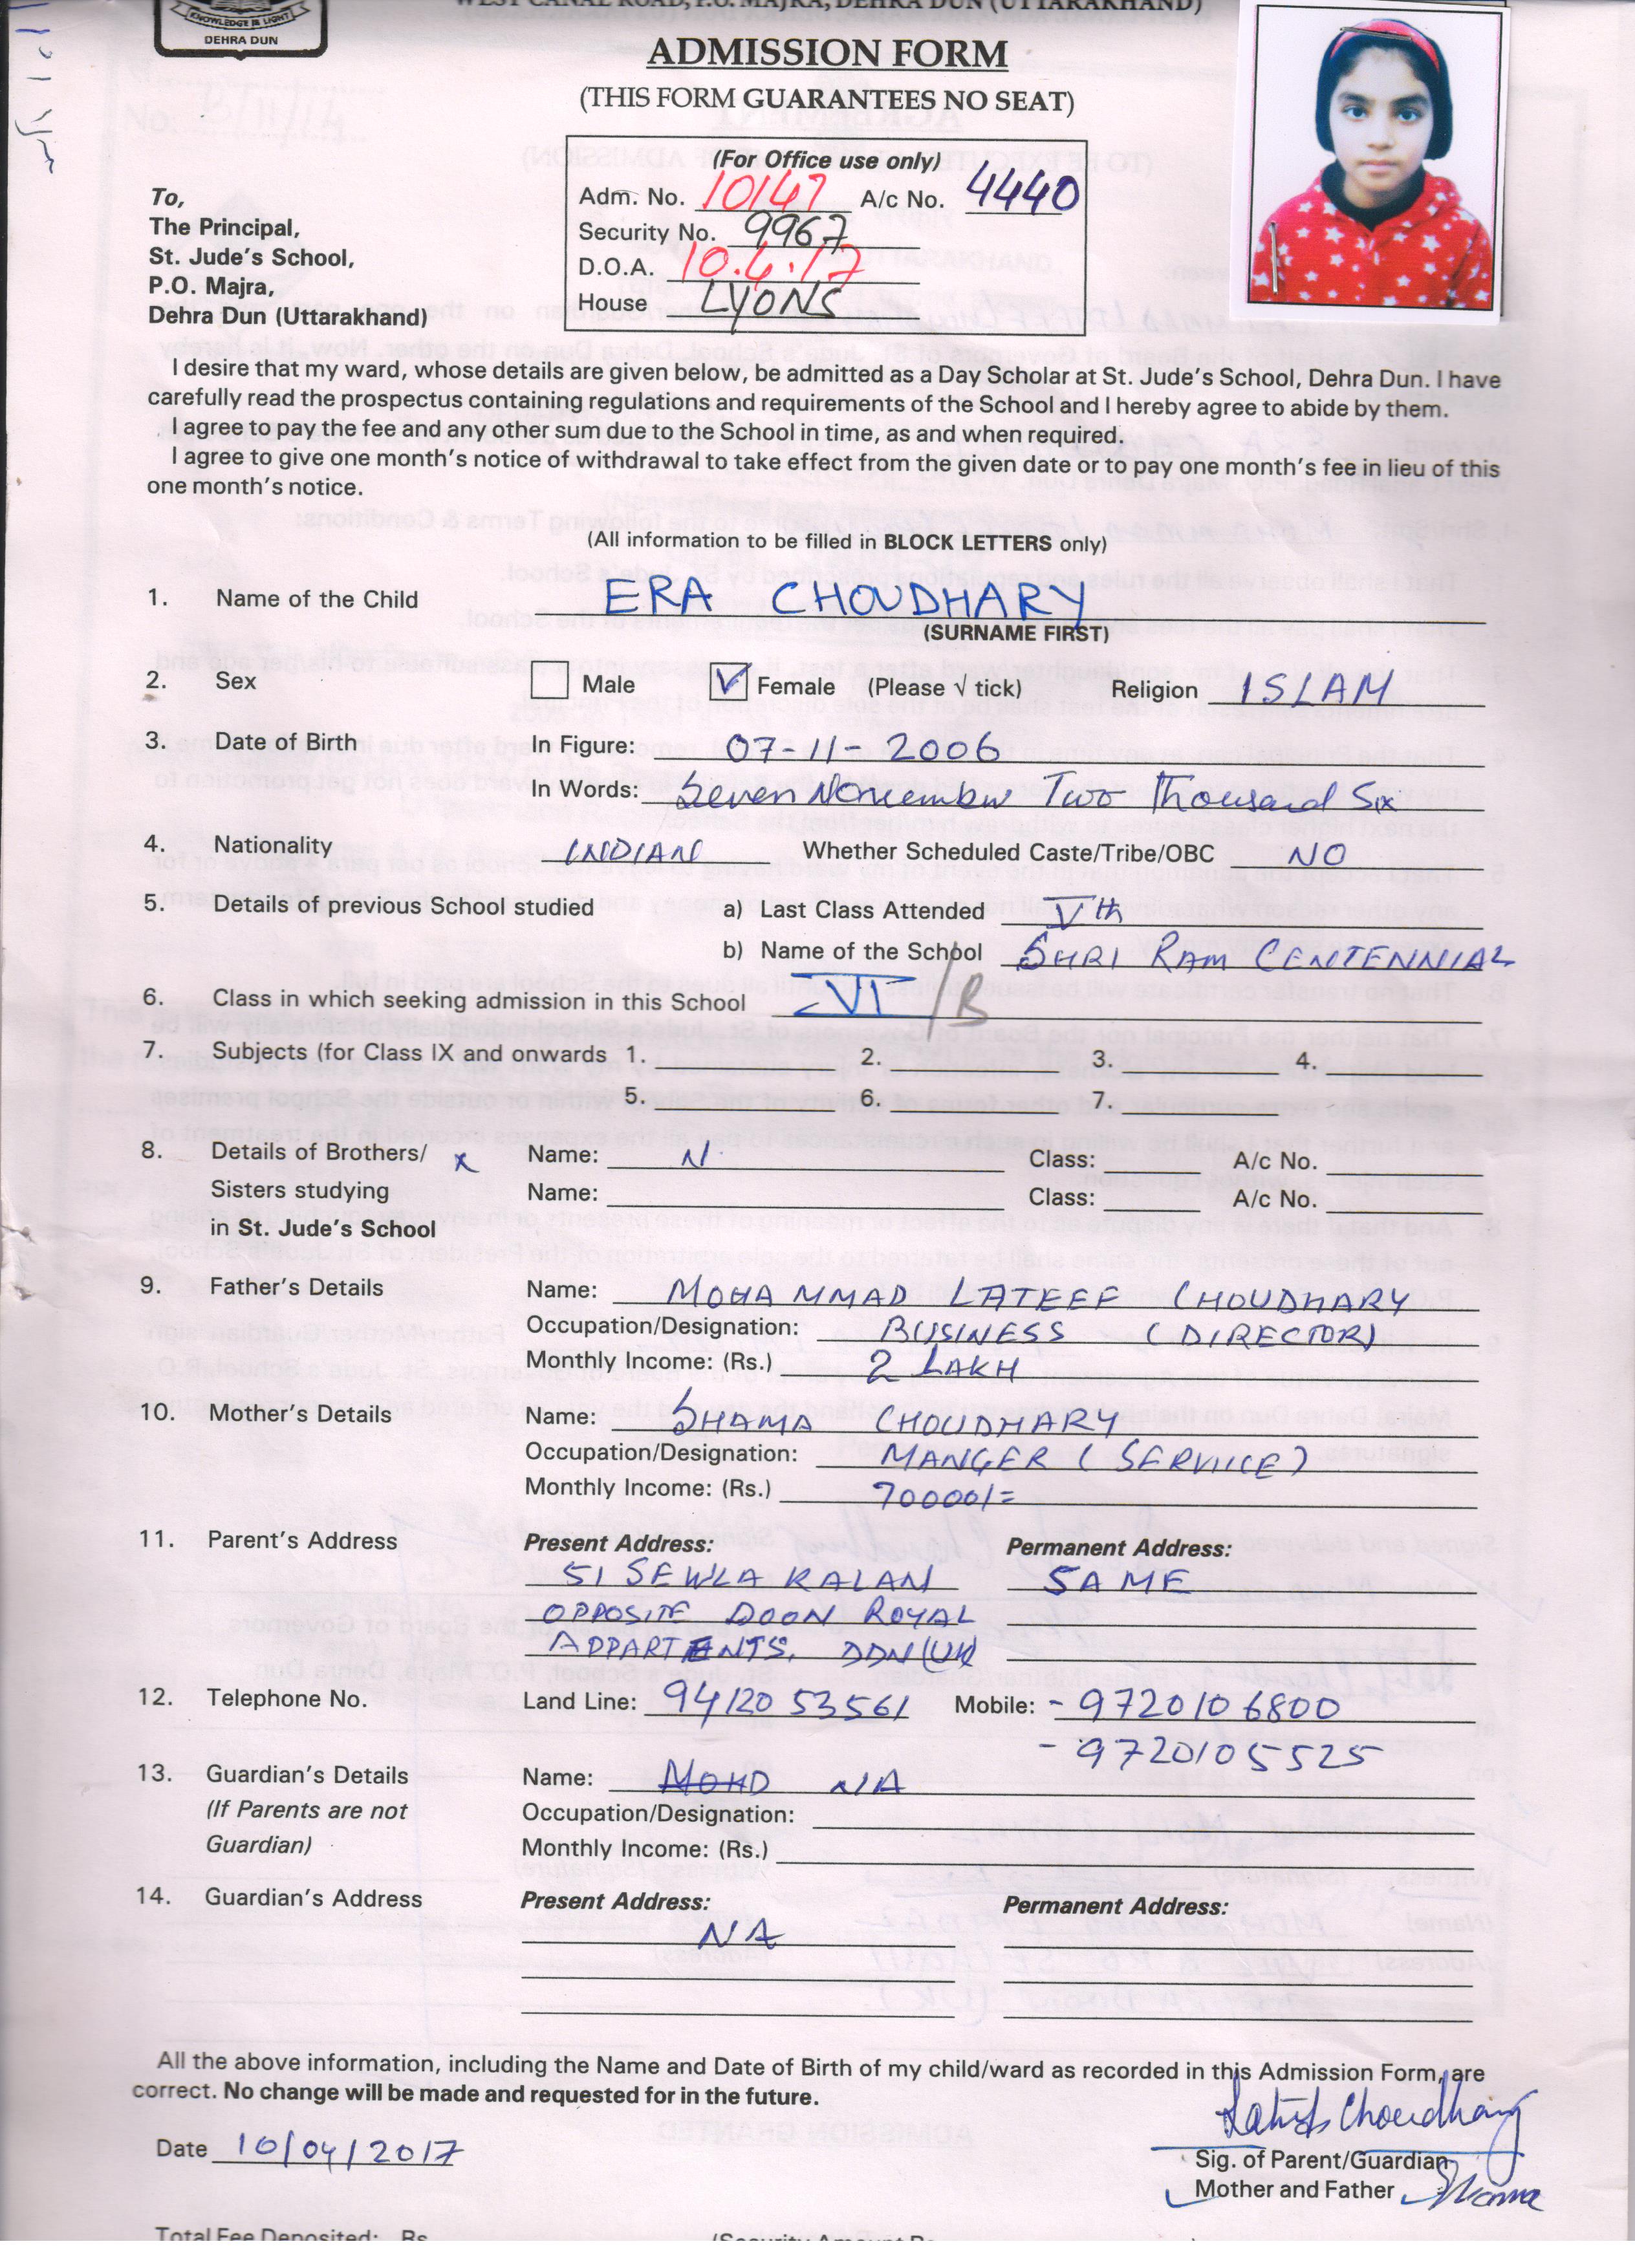 KNOWLEDGE IS LIGHT
DEHRA DUN
WEST CANAL ROAD, P.O. MAJRA, DEHRA DUN (UTTARAKHAND)
ADMISSION FORM
(THIS FORM GUARANTEES NO SEAT)
(For Office use only)
Adm. No. 10147 A/c No. 4440
Security No. 9967
D.O.A. 10.4.17
House LYONS
To,
The Principal,
St. Jude's School,
P.O. Majra,
Dehra Dun (Uttarakhand)
I desire that my ward, whose details are given below, be admitted as a Day Scholar at St. Jude's School, Dehra Dun. I have
carefully read the prospectus containing regulations and requirements of the School and I hereby agree to abide by them.
I agree to pay the fee and any other sum due to the School in time, as and when required.
I agree to give one month's notice of withdrawal to take effect from the given date or to pay one month's fee in lieu of this
one month's notice.
(All information to be filled in BLOCK LETTERS only)
1. Name of the Child ERA CHOUDHARY
(SURNAME FIRST)
2. Sex Male Female (Please √ tick) Religion ISLAM
3. Date of Birth In Figure: 07-11-2006
In Words: Seven November Two Thousand Six
4. Nationality INDIAN Whether Scheduled Caste/Tribe/OBC NO
5. Details of previous School studied a) Last Class Attended Vth
b) Name of the School SHRI RAM CENTENNIAL
6. Class in which seeking admission in this School VI/B
7. Subjects (for Class IX and onwards 1. 2. 3. 4.
5. 6. 7.
8. Details of Brothers/ x Name: N. Class: A/c No.
Sisters studying Name: Class: A/c No.
in St. Jude's School
9. Father's Details Name: MOHAMMAD LATEEF CHOUDHARY
Occupation/Designation: BUSINESS (DIRECTOR)
Monthly Income: (Rs.) 2 LAKH
10. Mother's Details Name: SHAMA CHOUDHARY
Occupation/Designation: MANGER (SERVIICE)
Monthly Income: (Rs.) 70000/=
11. Parent's Address Present Address: Permanent Address:
51 SEWLA KALAN SAME
OPPOSITE DOON ROYAL
APPARTENTS. DDN (UK)
12. Telephone No. Land Line: 9412053561 Mobile: - 9720106800
- 9720105525
13. Guardian's Details Name: MOHD NA
(If Parents are not Occupation/Designation:
Guardian) Monthly Income: (Rs.)
14. Guardian's Address Present Address: Permanent Address:
NA
All the above information, including the Name and Date of Birth of my child/ward as recorded in this Admission Form, are
correct. No change will be made and requested for in the future.
Choudhary
Date 10/04/2017
Sig. of Parent/Guardian
Mother and Father Shama
Total Fee Deposited: Rs
(Security Amount Rs